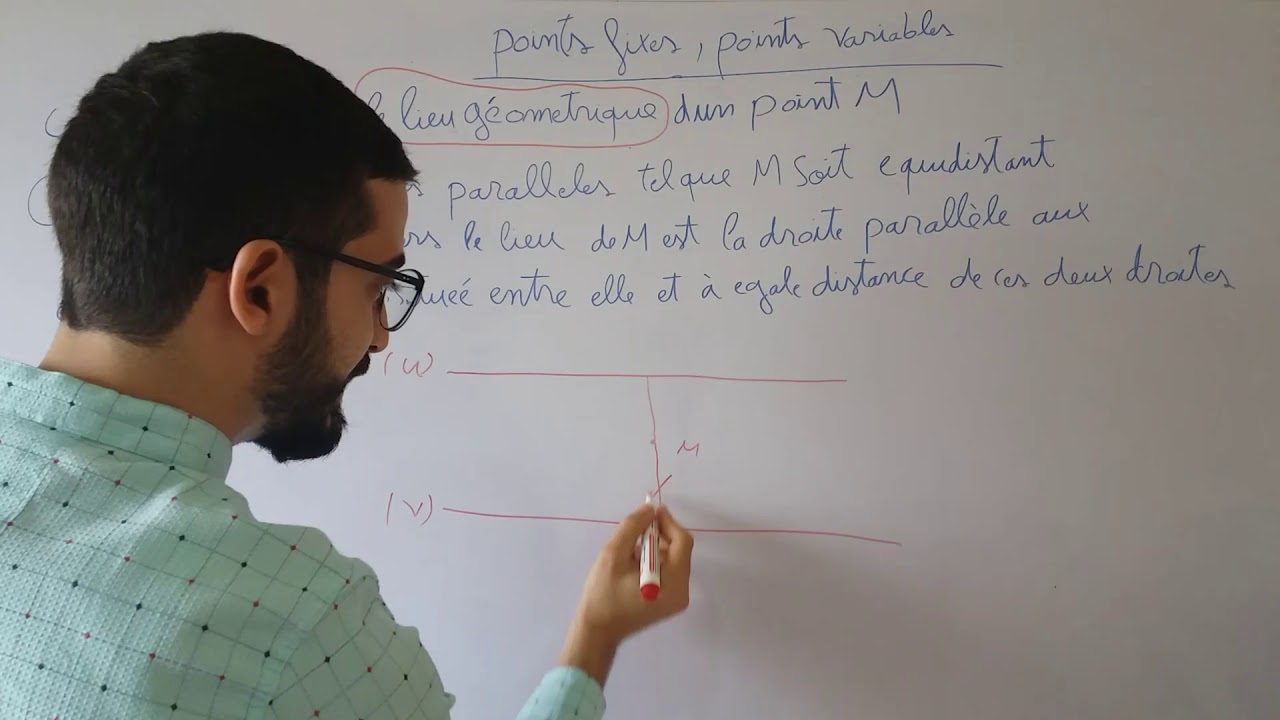 points fixes, points variables
le lieu géometrique dun point M
paralleles tel que M Soit equidistant
le lieu de M est la droite parallèle aux
entre elle et à egale distance de ces deux droites
(u)
M
(v)